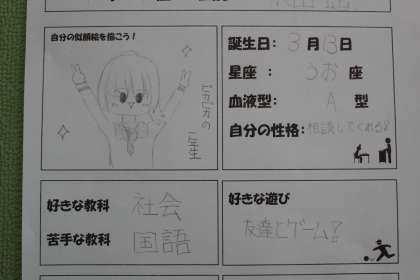 自分の似顔絵を描こう!
ピカピカの
一年生
誕生日: 3月13日
星座 : うお 座
血液型: A 型
自分の性格: 相談してくれる?
好きな教科 社会
苦手な教科 国語
好きな遊び
友達とゲーム?